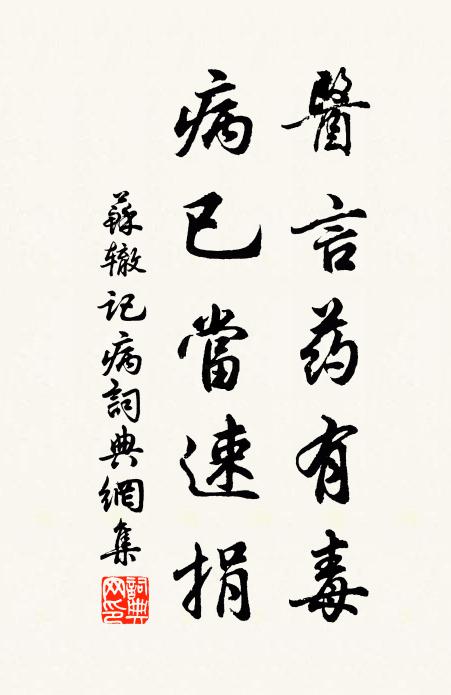 醫言药有毒
病已當速捐
蘇辙记病詞典網集
詞典网印